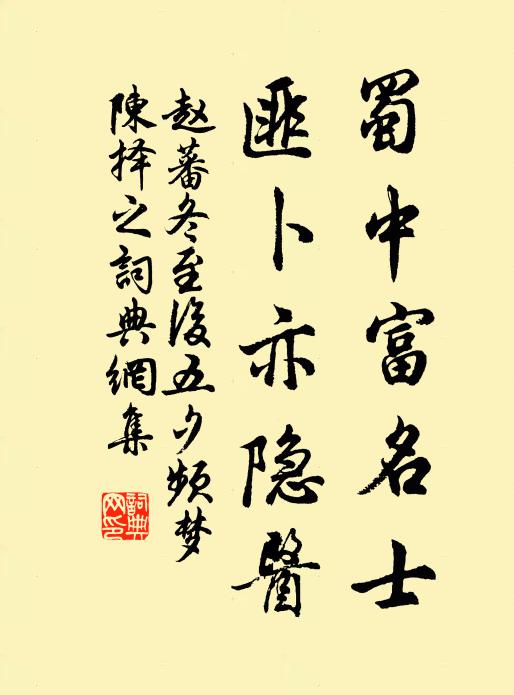 蜀中富名士
匪卜亦隐醫
赵蕃冬至後五夕频梦
陳择之詞典網集
詞典网印